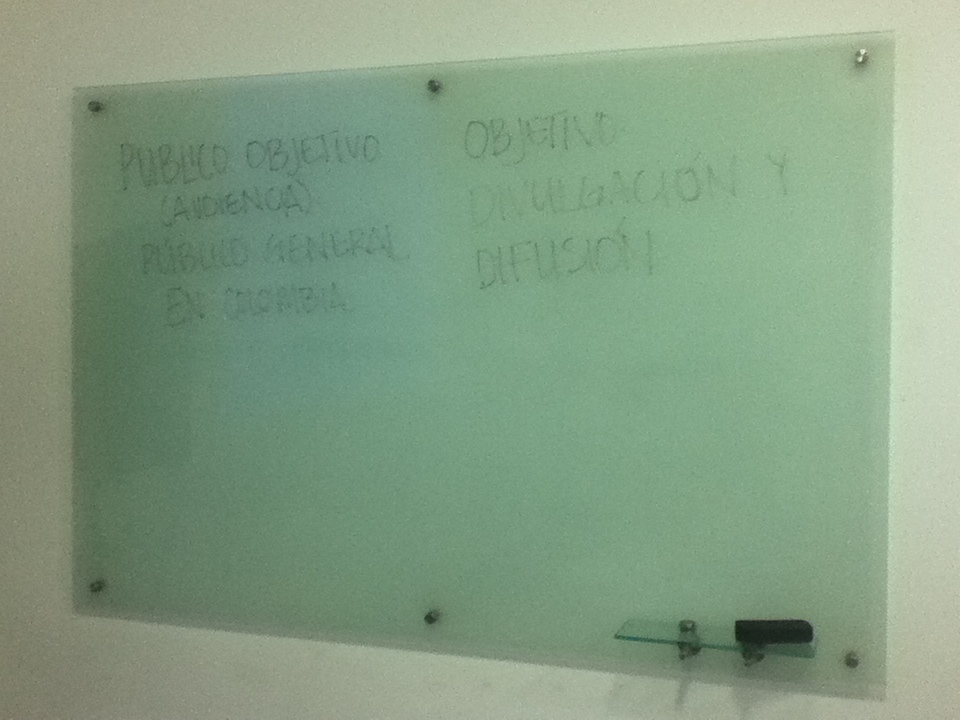 PÚBLICO OBJETIVO
(AUDIENCIA)
PÚBLICO GENERAL
EN COLOMBIA
OBJETIVO
DIVULGACIÓN Y
DIFUSIÓN